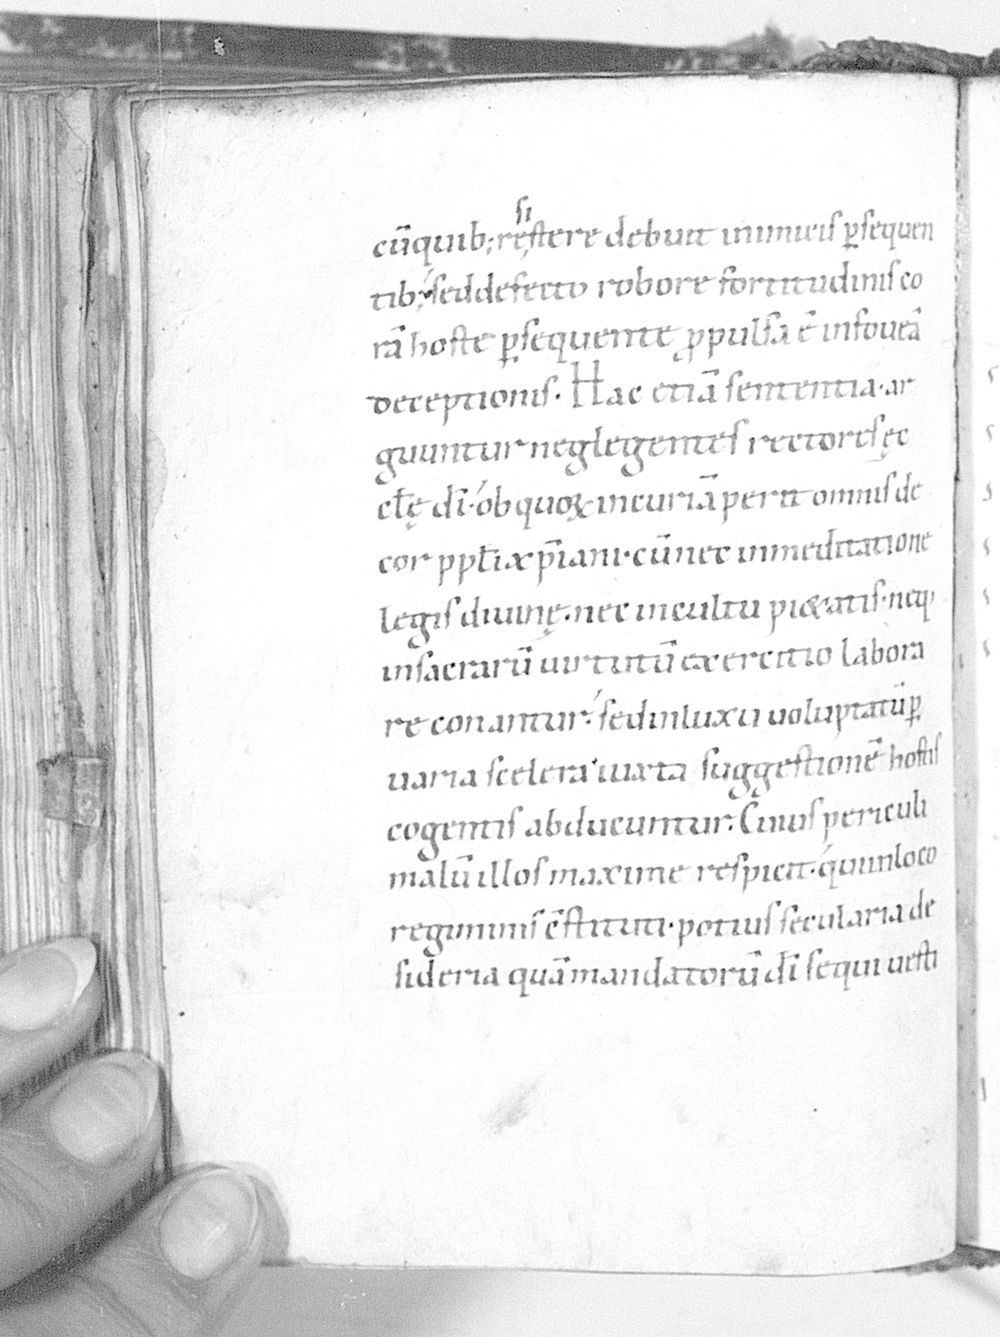 si
cūquib; restere debuit inimicis ꝑsequen
tib; sed defecto robore fortitudinis co
rā hoste ꝑsequente ꝓpulsa ē infoueā
deceptionis. Hac etiā sententia ar
guuntur neglegentes rectores ęc
cłę dī. ob quoꝝ incuriā perit omnis de
cor ppłi xp̄iani. cū nec inmeditatione
legis diuinę. nec incultu pi&atis. neq;
insacrarū uirtutū exercitio labora
re conantur. sed inluxu uoluptatū ꝑ
uaria scelera iuxta suggestionē hostis
cogentis abducuntur. Cuius periculi
malū illos maxime respicit. quiinloco
regiminis c̄stituti. potius secularia de
sideria quā mandatorū dī sequi uesti